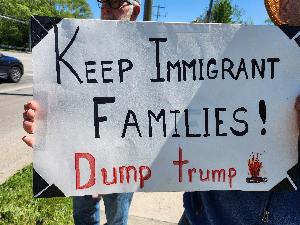 KEEP IMMIGRANT
FAMILIES!
Dump trump